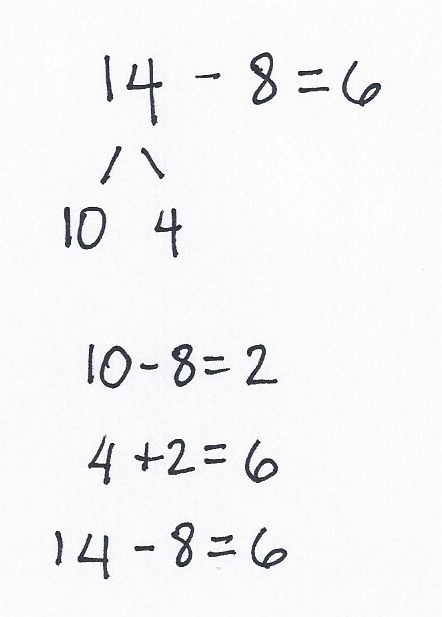 14 - 8 = 6
/ \
10 4
10 - 8 = 2
4 + 2 = 6
14 - 8 = 6